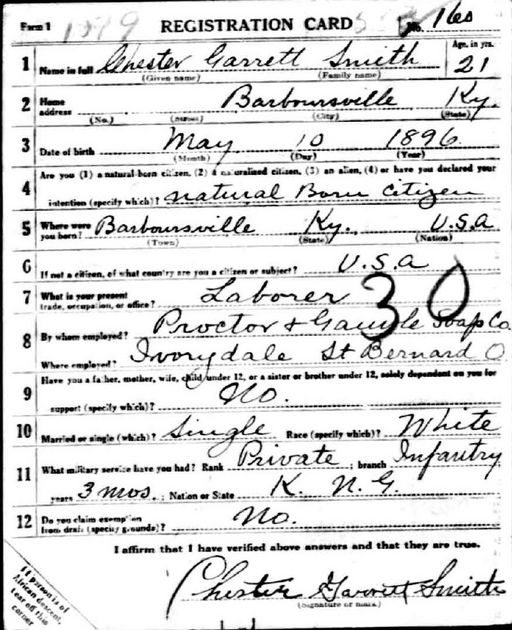 Form 1 1519 REGISTRATION CARD No. 160
1 Name in full Chester Garrett Smith Age, in yrs. 21
(Given name) (Family name)
2 Home address Barboursville Ky.
(No.) (Street) (City) (State)
3 Date of birth May 10 1896
(Month) (Day) (Year)
4 Are you (1) a natural-born citizen, (2) a naturalized citizen, (3) an alien, (4) or have you declared your
intention (specify which)? natural Born Citizen
5 Where were you born? Barboursville Ky. U.S.A
(Town) (State) (Nation)
6 If not a citizen, of what country are you a citizen or subject? U.S.A
7 What is your present trade, occupation, or office? Laborer 30
8 By whom employed? Proctor & Gamble Soap Co.
Where employed? Ivorydale St Bernard O
9 Have you a father, mother, wife, child under 12, or a sister or brother under 12, solely dependent on you for
support (specify which)? No.
10 Married or single (which)? Single Race (specify which)? White
11 What military service have you had? Rank Private ; branch Infantry
years 3 mos. ; Nation or State K. N. G.
12 Do you claim exemption from draft (specify grounds)? No.
I affirm that I have verified above answers and that they are true.
Chester Garrett Smith
(Signature or mark)
If person is of
African descent,
tear off this
corner